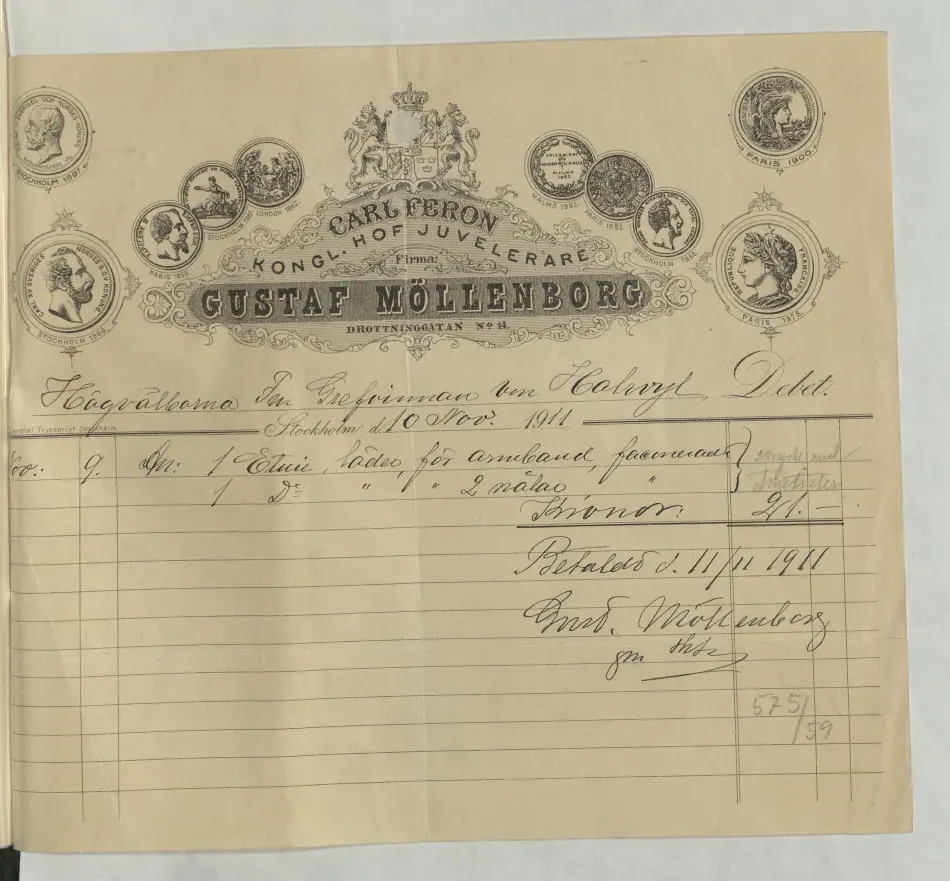 STOCKHOLM 1897.
PARIS 1900.
STOCKHOLM
LONDON 1862.
MALMÖ
PARIS
CARL FERON
KONGL. HOF JUVELERARE
Firma:
GUSTAF MÖLLENBORG
DROTTNINGGATAN No 13.
PARIS
STOCKHOLM
CARL XV SVERIGES NORGES G. O. V. KONUNG
STOCKHOLM 1866.
REPUBLIQUE FRANÇAISE
PARIS 1878.
Högvälborna Fru Grefvinnan von Hallwyl, Debet.
Central Tryckeriet Stockholm.
Stockholm d. 10 Nov. 1911
Nov.: 9. An: 1 Etuie, läder, för armband, faconerade
1 Do " " 2 nålar "
Kronor: 21.—
Betaldt d. 11/11 1911
Gust. Möllenborg
gm
575/59